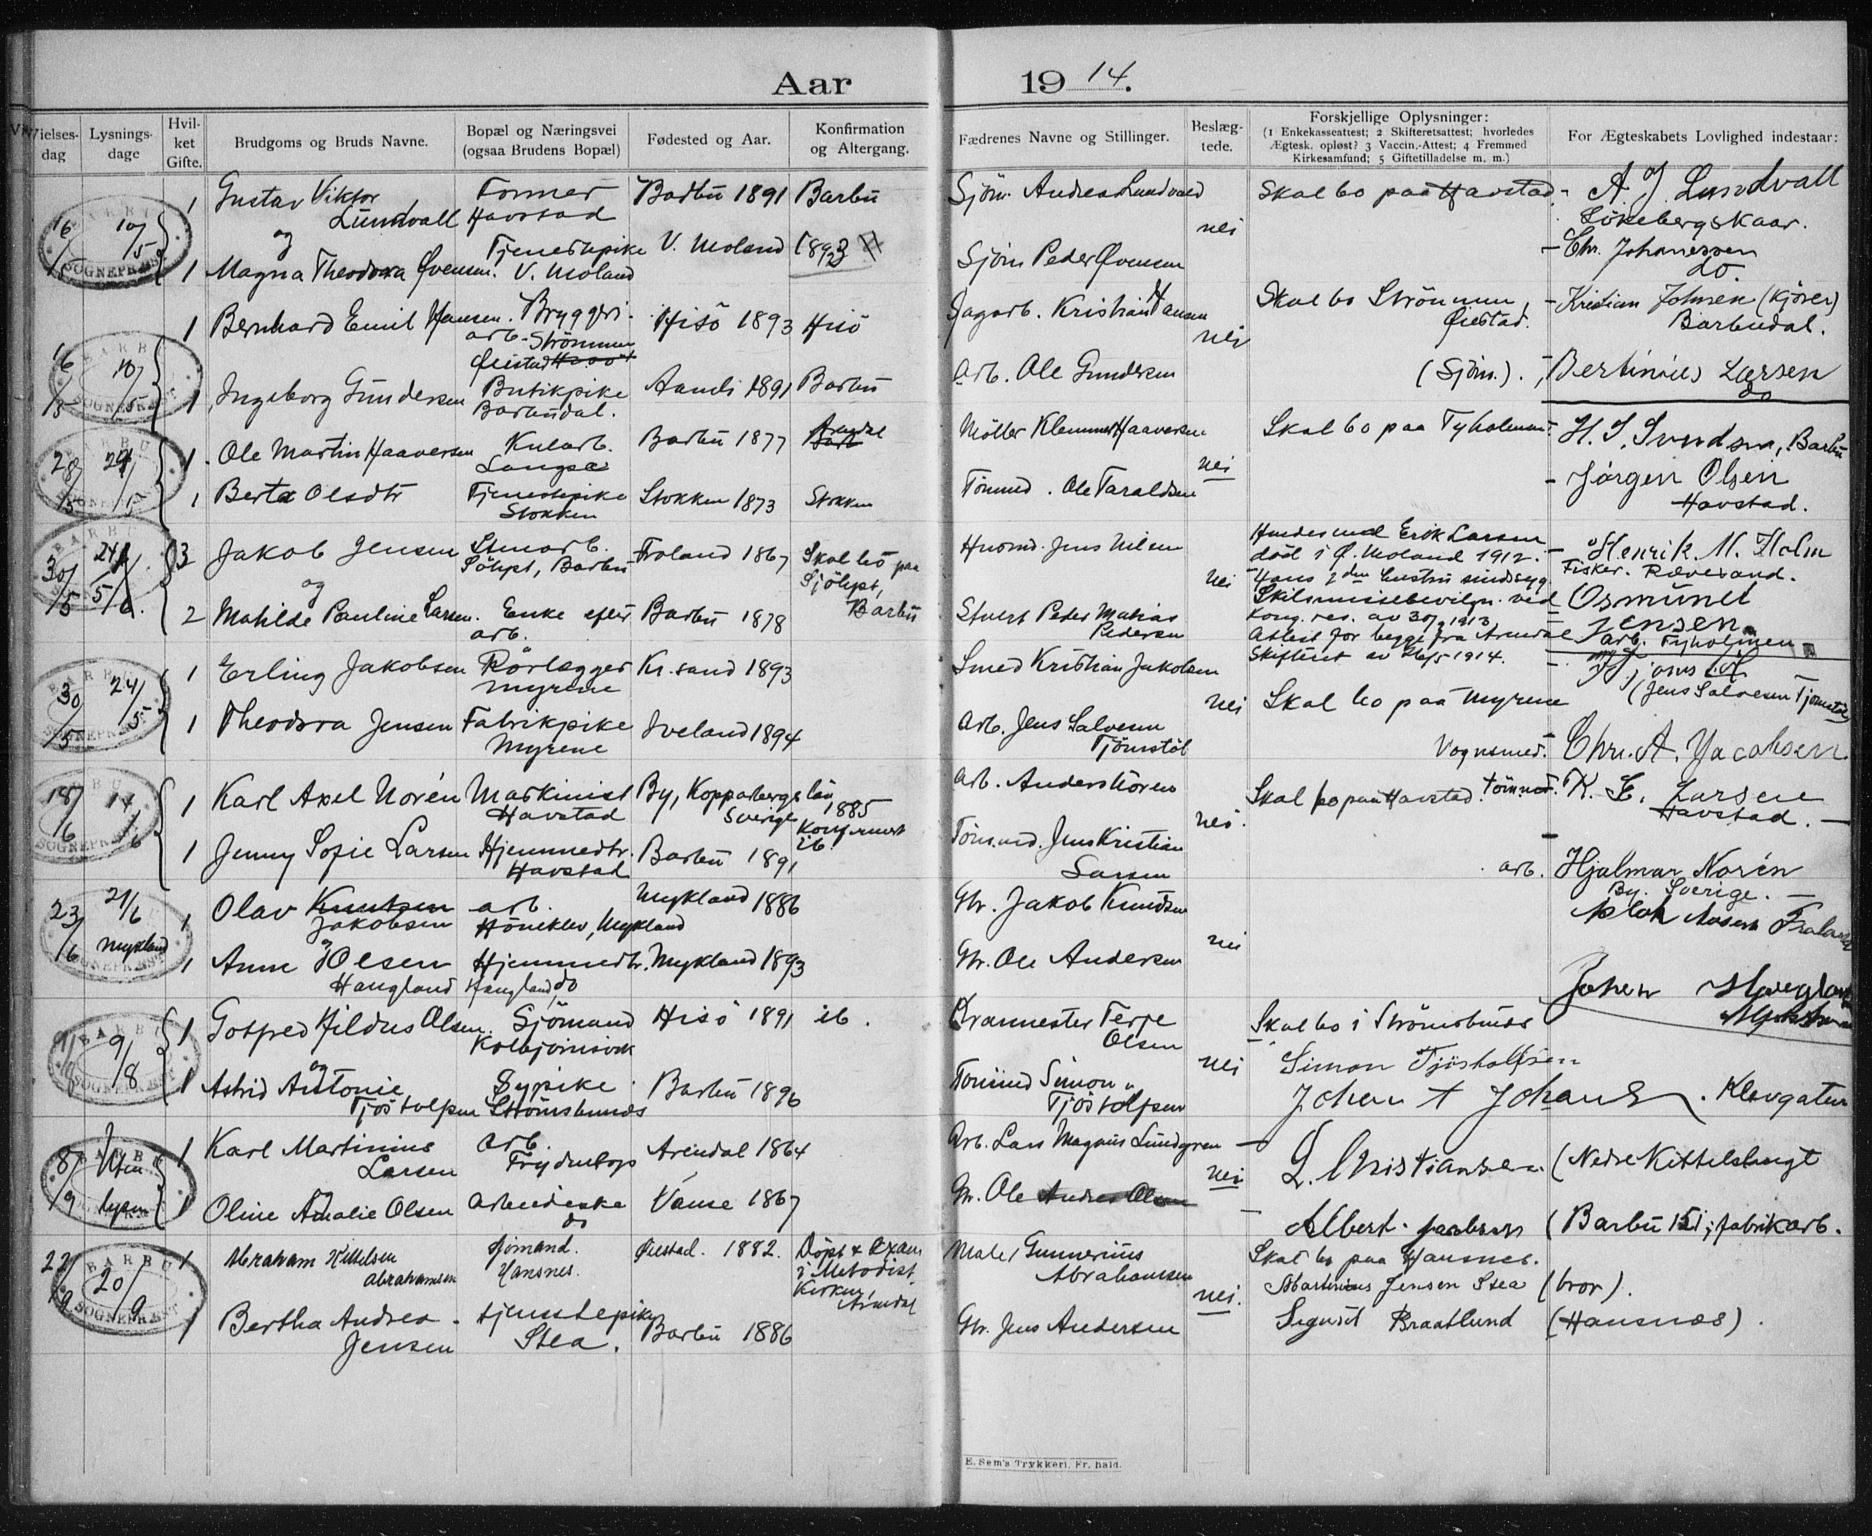 Aar 1914.
Vielses-
dag
Lysnings-
dage
Hvil-
ket
Gifte.
Brudgoms og Bruds Navne.
Bopæl og Næringsvei
(ogsaa Brudens Bopæl)
Fødested og Aar.
Konfirmation
og Altergang.
Fædrenes Navne og Stillinger.
Beslæg-
tede.
Forskjellige Oplysninger:
(1 Enkekasseattest; 2 Skifteretsattest; hvorledes
Ægtesk. opløst? 3 Vaccin.-Attest; 4 Fremmed
Kirkesamfund; 5 Giftetilladelse m. m.)
For Ægteskabets Lovlighed indestaar:
16/5 10/5
1 Gustav Viktor
Lundvall
Former
Havstad
Barbu 1891 Barbu
Sjöm. Andreas Lundvald
nei
Skal bo paa Havstad
A J Lundvall
Sökebergskaar.
og
1 Magna Theodora Øvensen.
Tjenestepike
V. Moland
V. Moland 1893
Sjöm Peder Øvensen
Chr. Johanessen
do
16/5 10/5
1 Bernhard Emil Hansen.
Bryggeri-
arb. Strömmen
Øiestad
Hisö 1893 Hisö
Dagarb. Kristian Hansen
nei
Skal bo Strömmen,
Øiestad.
Kristian Johsen (kjörer)
Barbudal.
1 Ingeborg Gundersen
Butikpike
Barbudal.
Aamli 1891 Barbu
Arb. Ole Gundersen
(Sjöm.).
Bertinius Larsen
do
28/5
1 Ole Martin Haaversen
Kularb.
Langsæ
Barbu 1877 Arendal
Möller Klemmet Haaversen
nei
Skal bo paa Tyholmen.
H. J. Svendsen, Barbu
1 Berte Olsdtr
Tjenestepike
Stokken
Stokken 1873 Stokken
Tömmd. Ole Taraldsen
Jörgen Olsen
Havstad.
30/5
3 Jakob Jensen
Stenarb.
Sölyst, Barbu
Froland 1867
Skal bo paa
Sjölyst,
Barbu
Husmd. Jens Nilsen
nei
Hendes md Erik Larsen
död i Ø. Moland 1912.
Hans 2den hustru sindssyg.
Skilsmissebeviln. ved
Kong. res. av 30/9 1913.
Attest for begge fra Arendal
Skifteret av 26/5 1914.
Henrik M. Holm
Fisker. Rævesand.
og
2 Matilde Pauline Larsen.
Enke efter
arb.
Barbu 1878
Stuert Peder Matias
Pedersen
Osmund
Jensen
arb. Tyholmen
30/5 24/5
1 Erling Jakobsen
Rörlegger
Myrene
Kr.sand 1893
Smed Kristian Jakobsen
nei
Skal bo paa Myrene
(Jens Salvesen Tjomstöl)
1 Theodora Jensen
Fabrikpike
Myrene
Iveland 1894
Arb. Jens Salvesen
Tjömstöl
Vognsmed.
Chr. A. Jacobsen
18/6 14/6
1 Karl Axel Norén
Maskinist
Havstad
By, Kopparbergs län,
Sverige 1885
Konfirmert
ib.
Arb. Anders Noren
nei.
Skal bo paa Havstad. tömmd.
K. L. Larsen
Havstad.
1 Jenny Sofie Larsen
Hjemmedtr.
Havstad
Barbu 1891
Tömmd. Jens Kristian
Larsen
arb. Hjalmar Norén
By. Sverige.
23/6 21/6
Mykland
1 Olav Knutsen
Jakobsen
arb.
Hönekler, Mykland
Mykland 1886
Gbr. Jakob Knudsen
nei
1 Anne Olsen
Haugland
Hjemmedtr.
Haugland, do
Mykland 1893
Gbr. Ole Andersen
Johan
9/8
1 Gotfred Hildus Olsen.
Sjömand
Kolbjörnsvik
Hisö 1891 ib.
Kranmester Terje
Olsen
nei
Skal bo i Strömsbunes
Simon Tjöstolfsen
og
1 Astrid Antonie
Tjöstolfsen
Sypike
Strömsbunes
Barbu 1896
Tömmd Simon
Tjöstolfsen
Johan A Johans . Klevgaten
8/9 Uten
lysn
1 Karl Martinius
Larsen
arb.
Frydentop
Arendal 1864
Arb. Lars Magnus Lundgren
nei
L. Christiansen (Nedre Kittelsbugt
1 Oline Amalie Olsen
Arbeiderske
do
Vanse 1867
Gbr. Ole Andreas Olsen
Albert Jacobsen (Barbu 151; fabrikarb.
22/9 20/9
1 Abraham Kittelsen
Abrahamsen
Sjömand.
Hansnes.
Øiestad. 1882.
Döpt &
i Metodist
Kirken,
Arendal
Maler Gunnerius
Abrahamsen
nei.
Skal bo paa Hansnes.
Martinius Jensen Stea (bror).
1 Bertha Andrea
Jensen
tjenestepike
Stea.
Barbu 1886
Gbr. Jens Andersen
Sigurd Braatlund (Hansnes).
BARBU
SOGNEPREST
E. Sem's Trykkeri, Fr. hald.